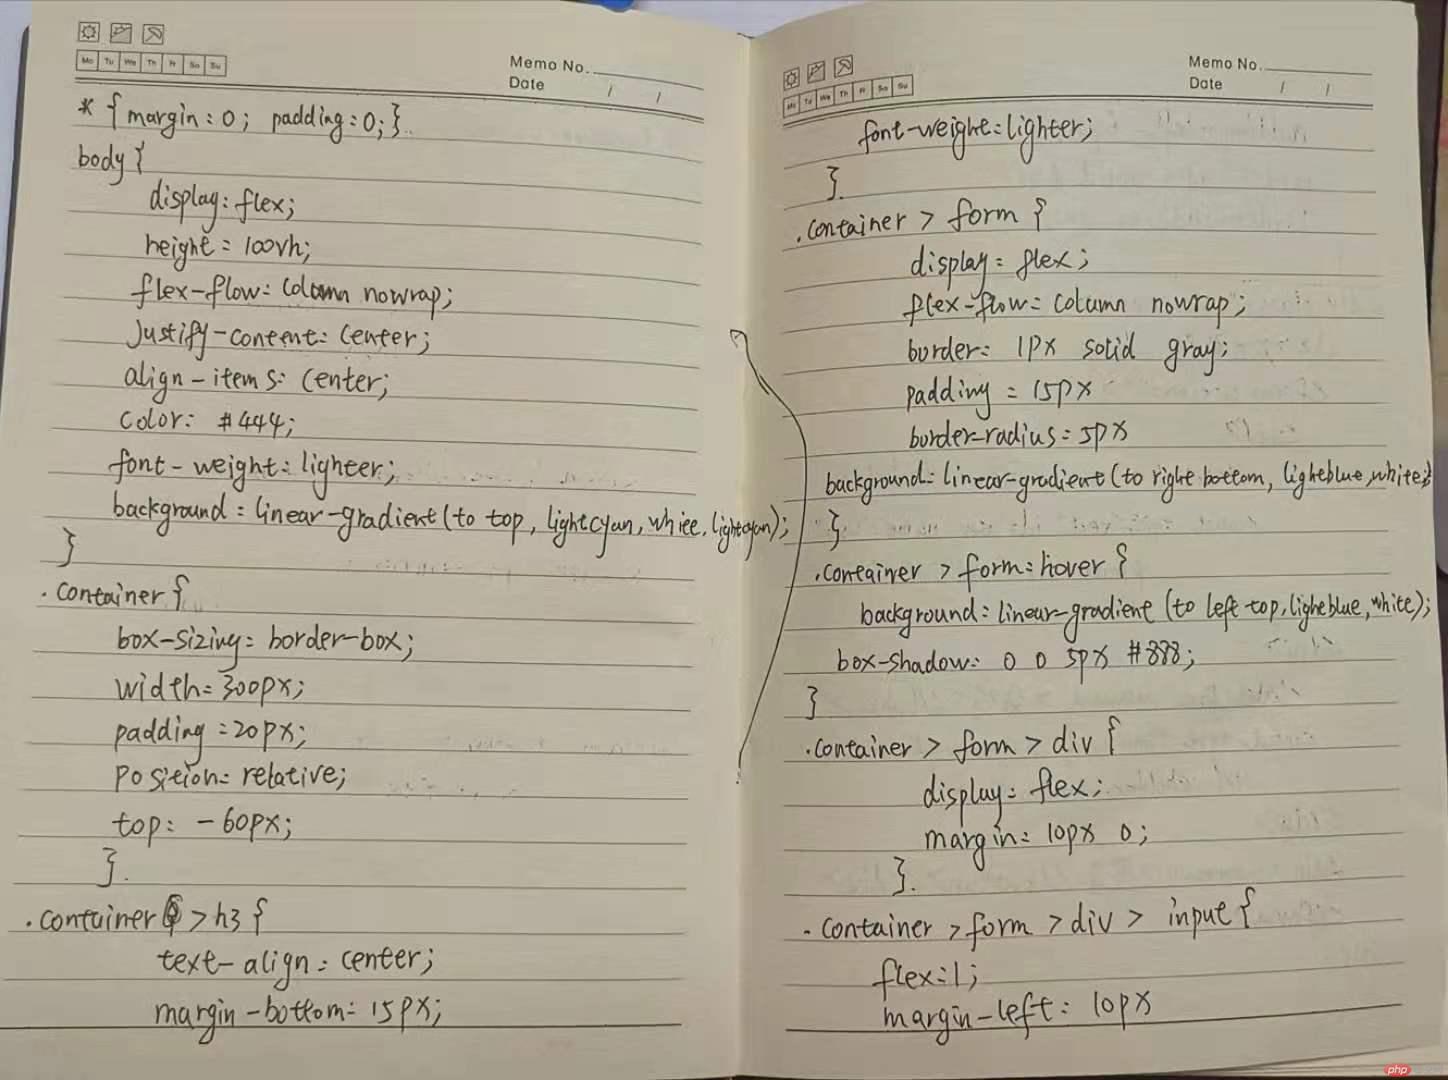 Mo Tu We Th Fr Sa Su
Memo No.
Date / /
* { margin: 0; padding: 0; }
body {
display: flex;
height: 100vh;
flex-flow: column nowrap;
justify-content: center;
align-items: center;
color: #444;
font-weight: lighter;
background: linear-gradient(to top, lightcyan, white, lightcyan);
}
.container {
box-sizing: border-box;
width: 300px;
padding: 20px;
position: relative;
top: -60px;
}.
.container > h3 {
text-align: center;
margin-bottom: 15px;
Mo Tu We Th Fr Sa Su
Memo No.
Date / /
font-weight: lighter;
}.
.container > form {
display: flex;
flex-flow: column nowrap;
border: 1px solid gray;
padding: 15px
border-radius: 5px
background: linear-gradient(to right bottom, lightblue, white);
}
.container > form:hover {
background: linear-gradient(to left top, lightblue, white);
box-shadow: 0 0 5px #888;
}
.container > form > div {
display: flex;
margin: 10px 0;
}.
.container > form > div > input {
flex: 1;
margin-left: 10px
php